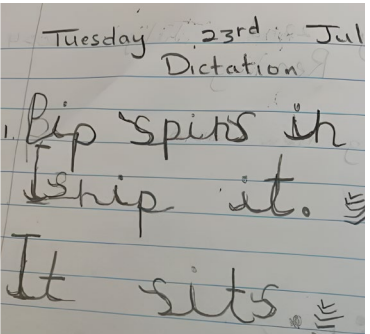 Tuesday 23rd Jul
Dictation
1. Bip spins in
I ship it.
It sits.